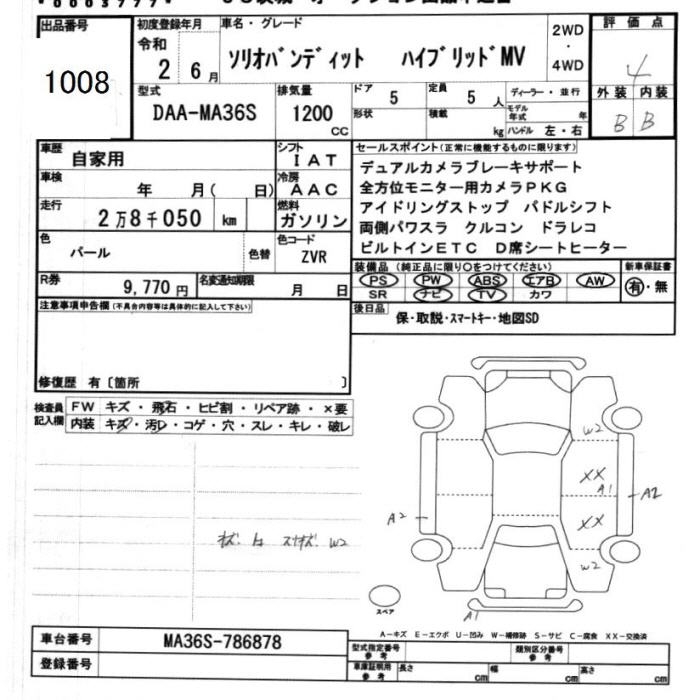 出品番号
1008
初度登録年月
令和
2 6月
車名・グレード
ソリオバンディット ハイブリッドMV
2WD
・
4WD
評価点
4
型式
DAA-MA36S
排気量
1200
cc
ドア
5
定員
5 人
形状
積載
kg
ディーラー・並行
モデル年式 年
ハンドル 左・右
外装 内装
B B
車歴
自家用
シフト
IAT
車検
年 月( 日)
冷房
AAC
走行
2万8千050 km
燃料
ガソリン
色
パール
色替
色コード
ZVR
R券
9,770円
名変通知期限
月 日
セールスポイント(正常に機能するものに限ります)
デュアルカメラブレーキサポート
全方位モニター用カメラPKG
アイドリングストップ パドルシフト
両側パワスラ クルコン ドラレコ
ビルトインETC D席シートヒーター
装備品(純正品に限り〇をつけてください)
PS PW ABS エアB AW
SR ナビ TV カワ
新車保証書
有・無
後日品
保・取説・スマートキー・地図SD
注意事項申告欄(不具合内容等は具体的に記入して下さい)
修復歴 有〔箇所 〕
検査員記入欄
FW キズ・飛石・ヒビ割・リペア跡・×要
内装 キズ・汚レ・コゲ・穴・スレ・キレ・破レ
W2
W2
XX
A1
XX
W2
A2
A2
A1
スペア
A-キズ E-エクボ U-凹み W-補修跡 S-サビ C-腐食 XX-交換済
車台番号
MA36S-786878
登録番号
型式指定番号
参考
類別区分番号
参考
車庫証明用
参考
長さ cm
幅 cm
高さ cm